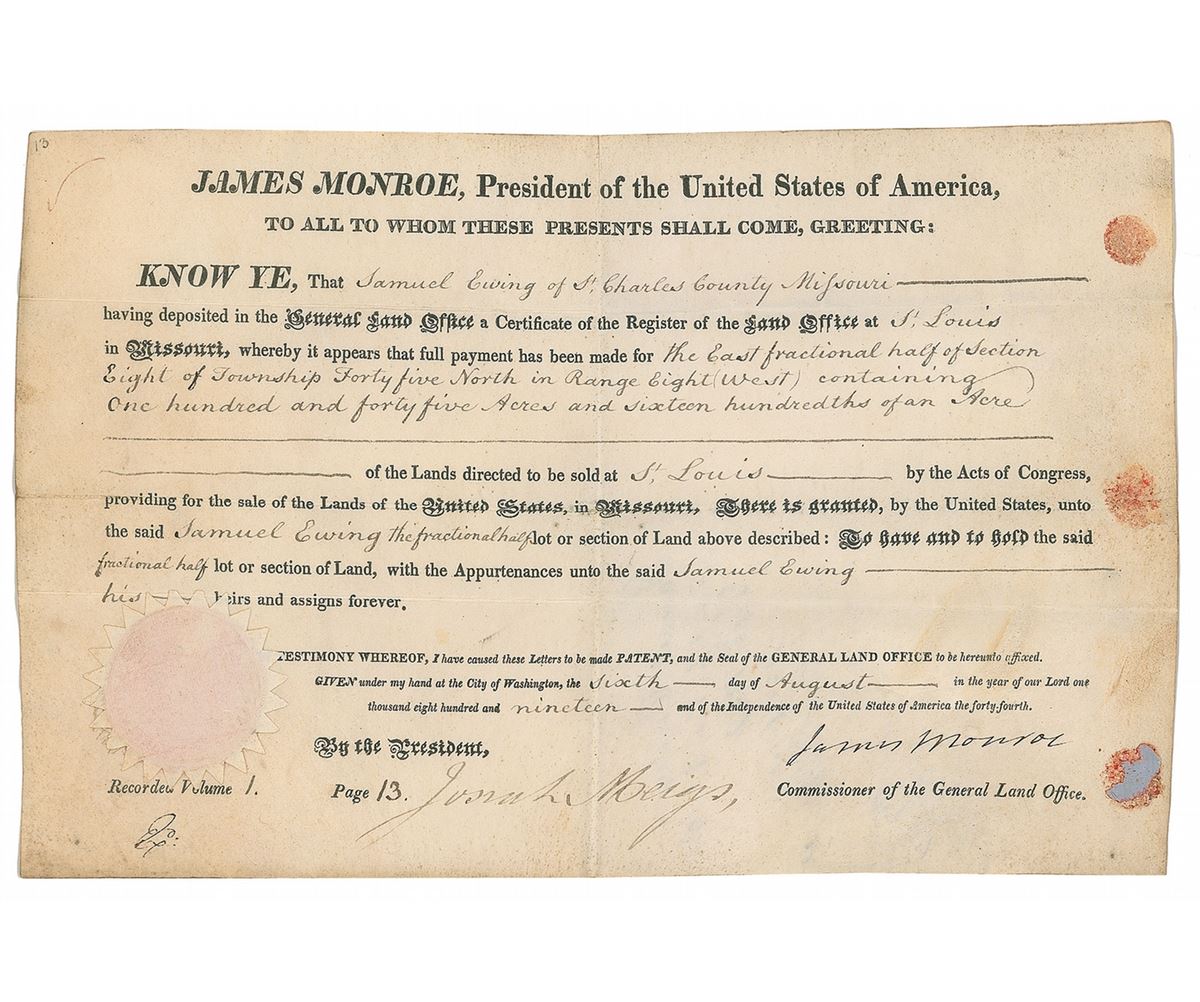 13
JAMES MONROE, President of the United States of America,
TO ALL TO WHOM THESE PRESENTS SHALL COME, GREETING:
KNOW YE, That Samuel Ewing of St. Charles County Missouri
having deposited in the General Land Office a Certificate of the Register of the Land Office at St. Louis
in Missouri, whereby it appears that full payment has been made for the East fractional half of Section
Eight of Township Forty five North in Range Eight (West) containing
One hundred and forty five Acres and sixteen hundredths of an Acre
of the Lands directed to be sold at St. Louis by the Acts of Congress,
providing for the sale of the Lands of the United States, in Missouri, There is granted, by the United States, unto
the said Samuel Ewing the fractional half lot or section of Land above described: To have and to hold the said
fractional half lot or section of Land, with the Appurtenances unto the said Samuel Ewing
his heirs and assigns forever.
TESTIMONY WHEREOF, I have caused these Letters to be made PATENT, and the Seal of the GENERAL LAND OFFICE to be hereunto affixed.
GIVEN under my hand at the City of Washington, the sixth day of August in the year of our Lord one
thousand eight hundred and nineteen and of the Independence of the United States of America the forty-fourth.
By the President, James Monroe
Recorded Volume 1. Page 13. Josiah Meigs, Commissioner of the General Land Office.